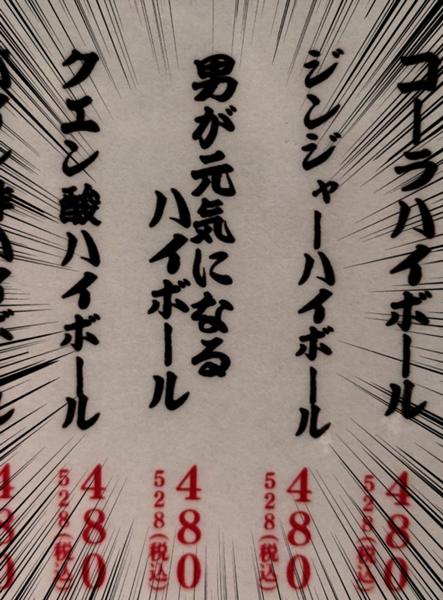 コーラハイボール
480
528(税込)
ジンジャーハイボール
480
528(税込)
男が元気になる
ハイボール
480
528(税込)
クエン酸ハイボール
480
528(税込)
480